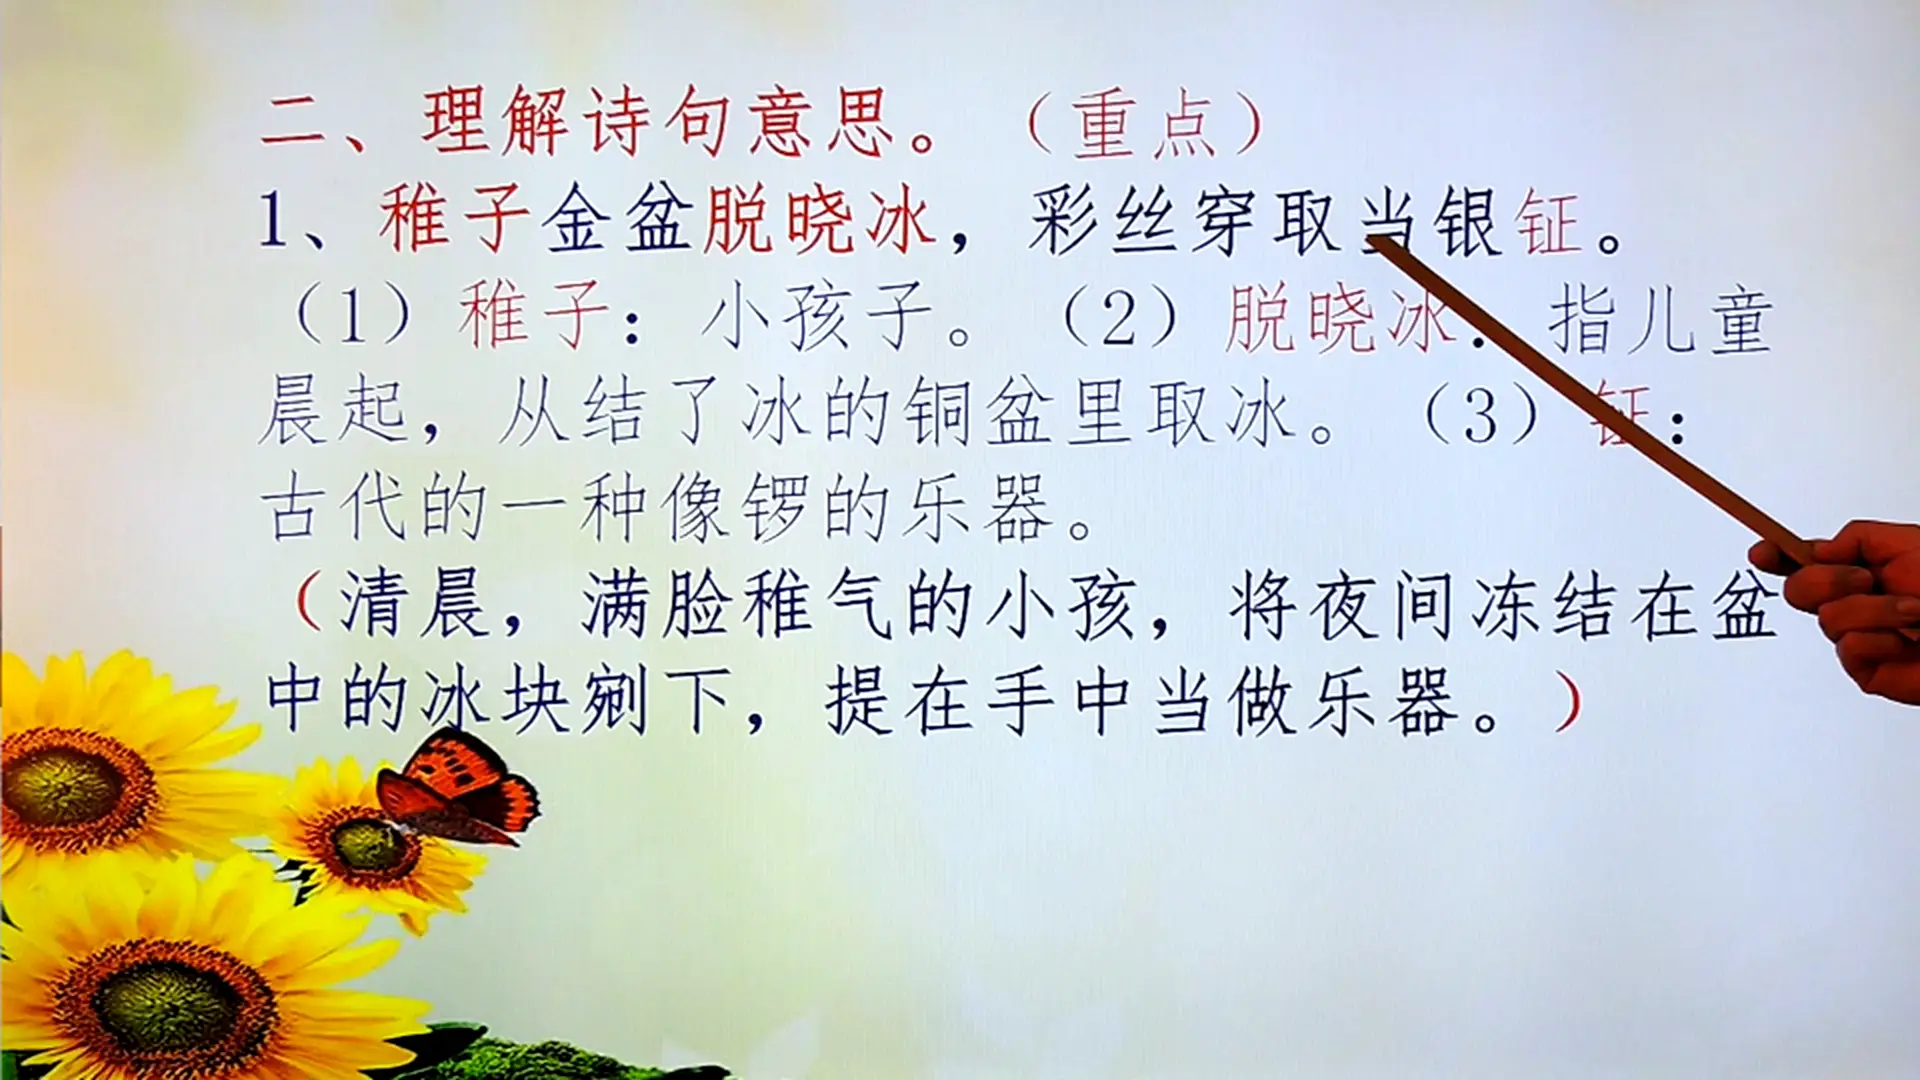 二、理解诗句意思。（重点）
1、稚子金盆脱晓冰，彩丝穿取当银钲。
（1）稚子：小孩子。（2）脱晓冰：指儿童
晨起，从结了冰的铜盆里取冰。（3）钲：
古代的一种像锣的乐器。
（清晨，满脸稚气的小孩，将夜间冻结在盆
中的冰块剜下，提在手中当做乐器。）